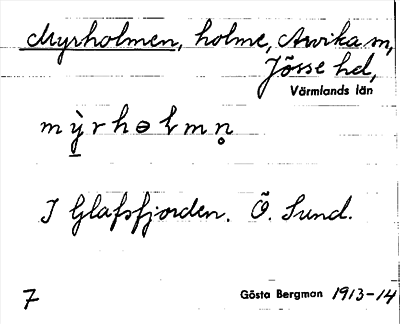 Myrholmen, holme, Arvika m,
Jösse hd,
Värmlands län
m ỳ̱ r h ɵ ɫ m n̥
I Glafsfjorden. Ö. Sund.
7 Gösta Bergman 1913-14